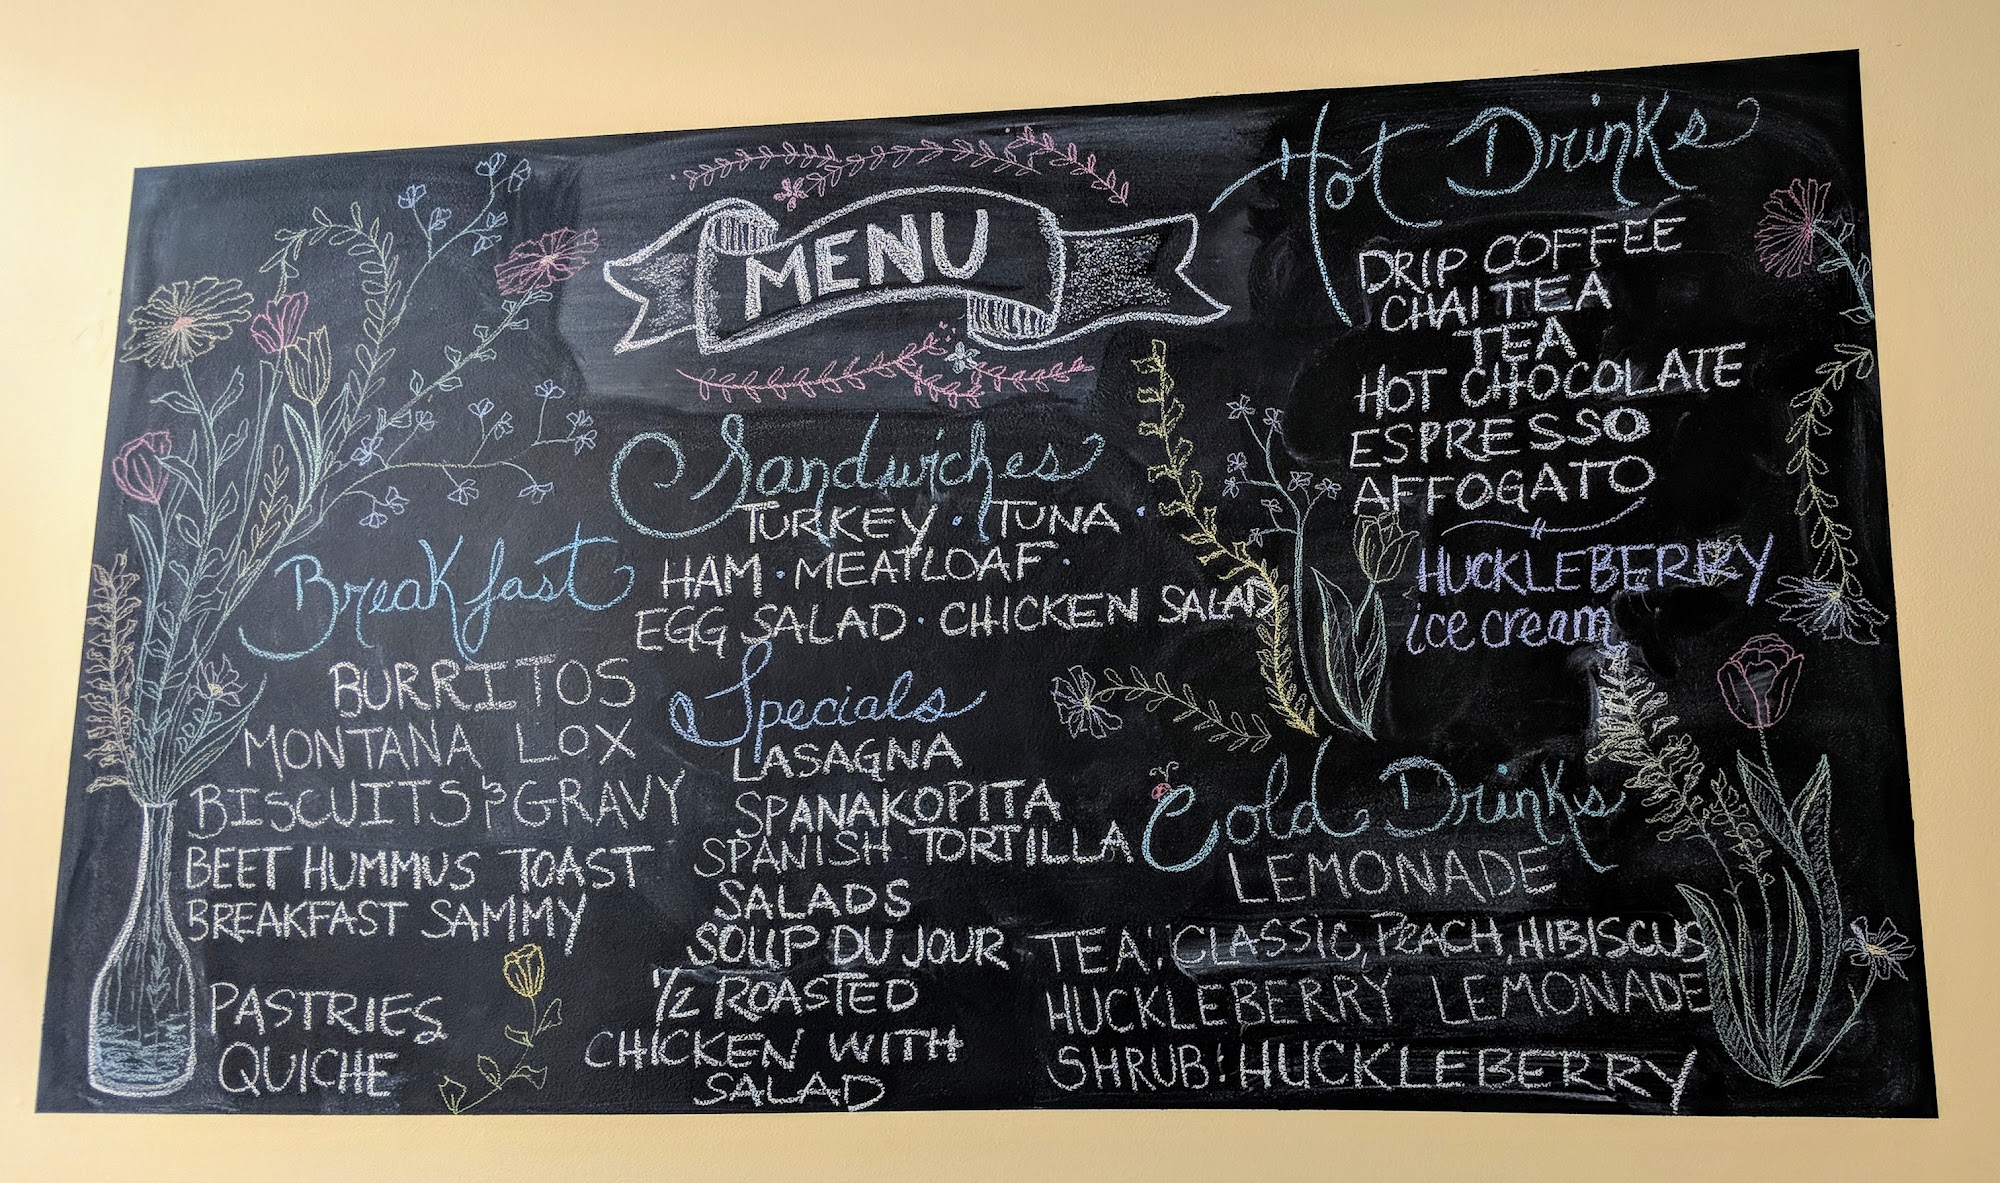 MENU
Breakfast
BURRITOS
MONTANA LOX
BISCUITS & GRAVY
BEET HUMMUS TOAST
BREAKFAST SAMMY
PASTRIES
QUICHE
Sandwiches
TURKEY · TUNA ·
HAM · MEATLOAF ·
EGG SALAD · CHICKEN SALAD
Specials
LASAGNA
SPANAKOPITA
SPANISH TORTILLA
SALADS
SOUP DU JOUR
1/2 ROASTED
CHICKEN WITH
SALAD
Hot Drinks
DRIP COFFEE
CHAI TEA
TEA
HOT CHOCOLATE
ESPRESSO
AFFOGATO
HUCKLEBERRY
ice cream
Cold Drinks
LEMONADE
TEA: CLASSIC, PEACH, HIBISCUS
HUCKLEBERRY LEMONADE
SHRUB: HUCKLEBERRY